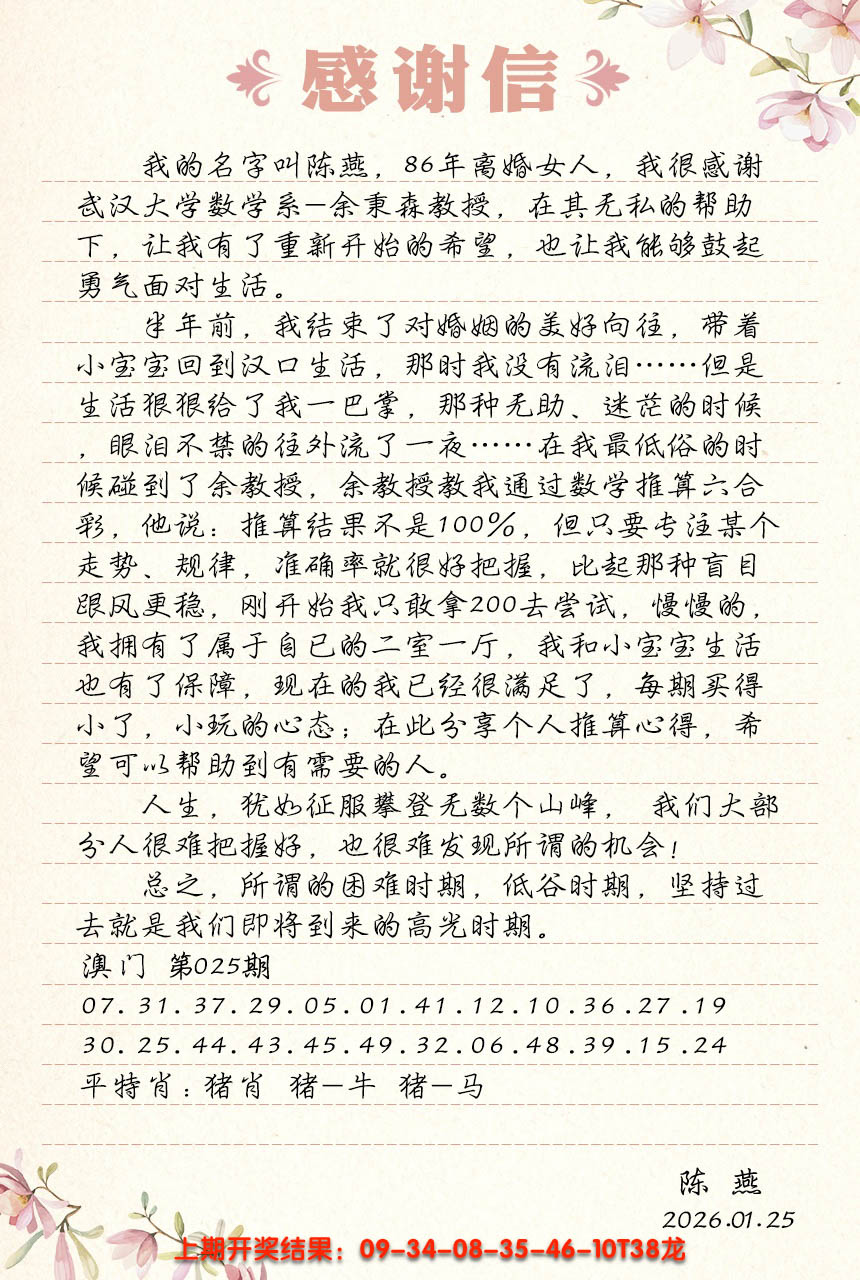 感谢信
我的名字叫陈燕，86年离婚女人，我很感谢
武汉大学数学系-余秉森教授，在其无私的帮助
下，让我有了重新开始的希望，也让我能够鼓起
勇气面对生活。
半年前，我结束了对婚姻的美好向往，带着
小宝宝回到汉口生活，那时我没有流泪……但是
生活狠狠给了我一巴掌，那种无助、迷茫的时候
，眼泪不禁的往外流了一夜……在我最低俗的时
候碰到了余教授，余教授教我通过数学推算六合
彩，他说：推算结果不是100%，但只要专注某个
走势、规律，准确率就很好把握，比起那种盲目
跟风更稳，刚开始我只敢拿200去尝试，慢慢的，
我拥有了属于自已的二室一厅，我和小宝宝生活
也有了保障，现在的我已经很满足了，每期买得
小了，小玩的心态；在此分享个人推算心得，希
望可以帮助到有需要的人。
人生，犹如征服攀登无数个山峰， 我们大部
分人很难把握好，也很难发现所谓的机会！
总之，所谓的困难时期，低谷时期，坚持过
去就是我们即将到来的高光时期。
澳门 第025期
07.31.37.29.05.01.41.12.10.36.27.19
30.25.44.43.45.49.32.06.48.39.15.24
平特肖：猪肖 猪-牛 猪-马
陈 燕
2026.01.25
上期开奖结果：09-34-08-35-46-10T38龙